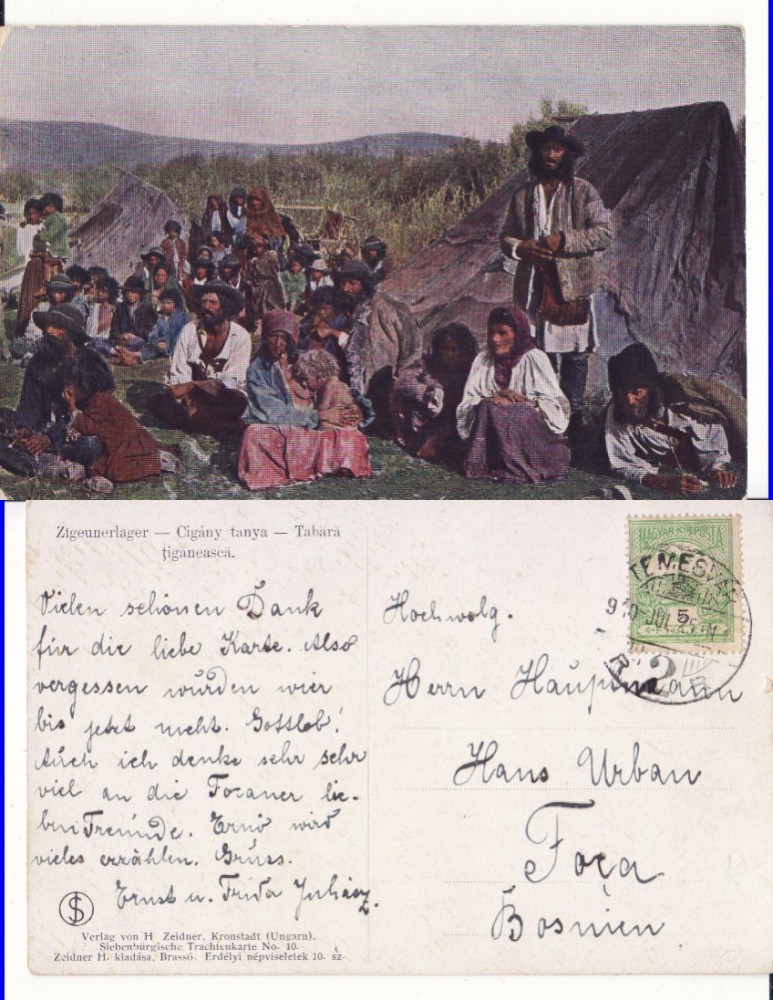 Zigeunerlager — Cigány tanya — Tabără
țigănească.
Vielen schönen Dank
für die liebe Karte. Also
vergessen wurden wier
bis jetzt nicht. Gottlob!
Auch ich denke sehr sehr
viel an die Focaner lie-
ben Freunde. Ernö wird
vieles erzählen. Gruss.
Ernst u. Frida Juhász.
Verlag von H. Zeidner, Kronstadt (Ungarn).
Siebenbürgische Trachtenkarte No. 10.
Zeidner H. kiadása, Brassó. Erdélyi népviseletek 10. sz.
MAGYAR KIR. POSTA
5
TEMESVÁR
910 JUL
2
Hochwolg.
Herrn Hauptmann
Hans Urban
Foça
Bosnien